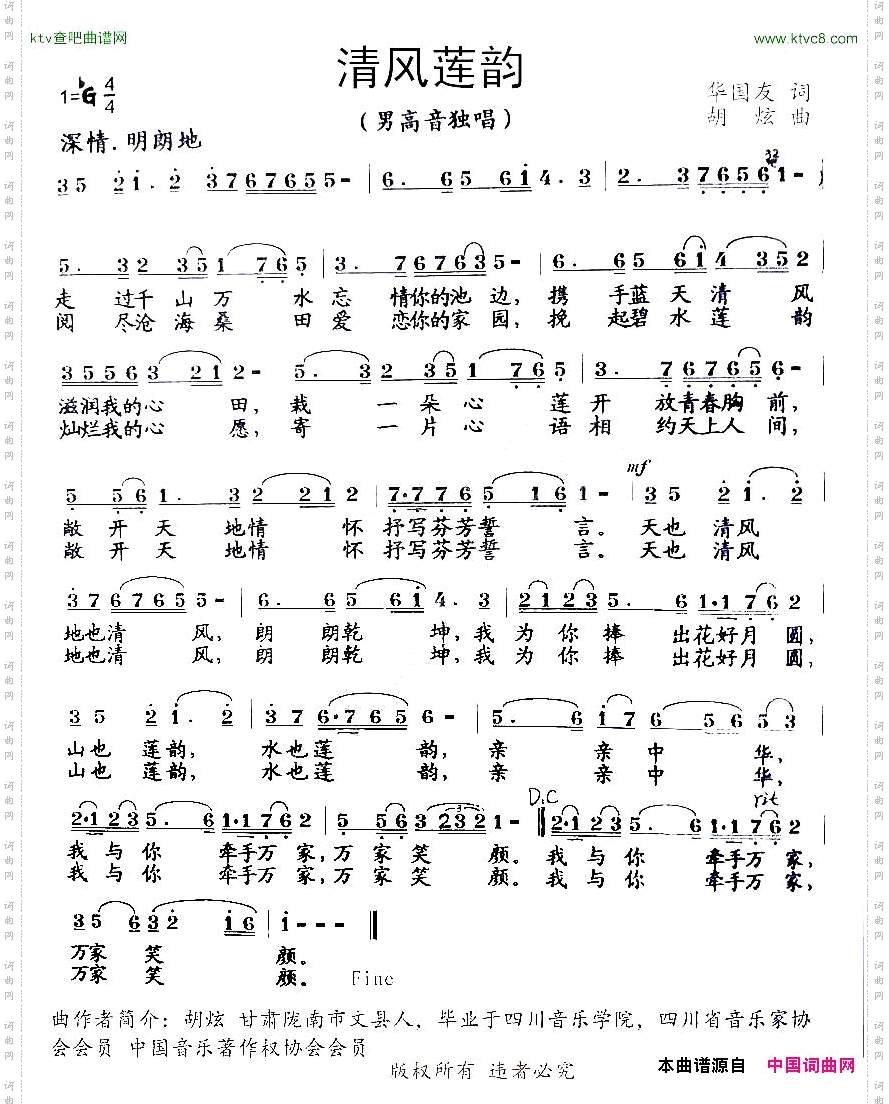 ktv查吧曲谱网
www.ktvc8.com
清风莲韵
(男高音独唱)
1=♭G 4/4
华国友 词
胡 炫 曲
深情.明朗地
走 过千山万 水忘 情你的池边, 携 手蓝天清 风
阅 尽沧海桑 田爱 恋你的家园, 挽 起碧水莲 韵
滋润我的心 田, 栽 一朵心 莲开 放青春胸前,
灿烂我的心 愿, 寄 一片心 语相 约天上人间,
mf
敞开天 地情 怀 抒写芬芳誓 言。 天也 清风
敞开天 地情 怀 抒写芬芳誓 言。 天也 清风
地也清 风, 朗 朗乾 坤,我 为你捧 出花好月圆,
地也清 风, 朗 朗乾 坤,我 为你捧 出花好月圆,
山也 莲韵, 水也莲 韵, 亲 亲中 华,
山也 莲韵, 水也莲 韵, 亲 亲中 华,
D.C
rit
我与你 牵手万家,万家笑 颜。我与你 牵手万家,
我与你 牵手万家,万家笑 颜。我与你 牵手万家,
万家 笑 颜。
万家 笑 颜。 Fine
曲作者简介: 胡炫 甘肃陇南市文县人, 毕业于四川音乐学院, 四川省音乐家协
会会员 中国音乐著作权协会会员
版权所有 违者必究
本曲谱源自 中国词曲网